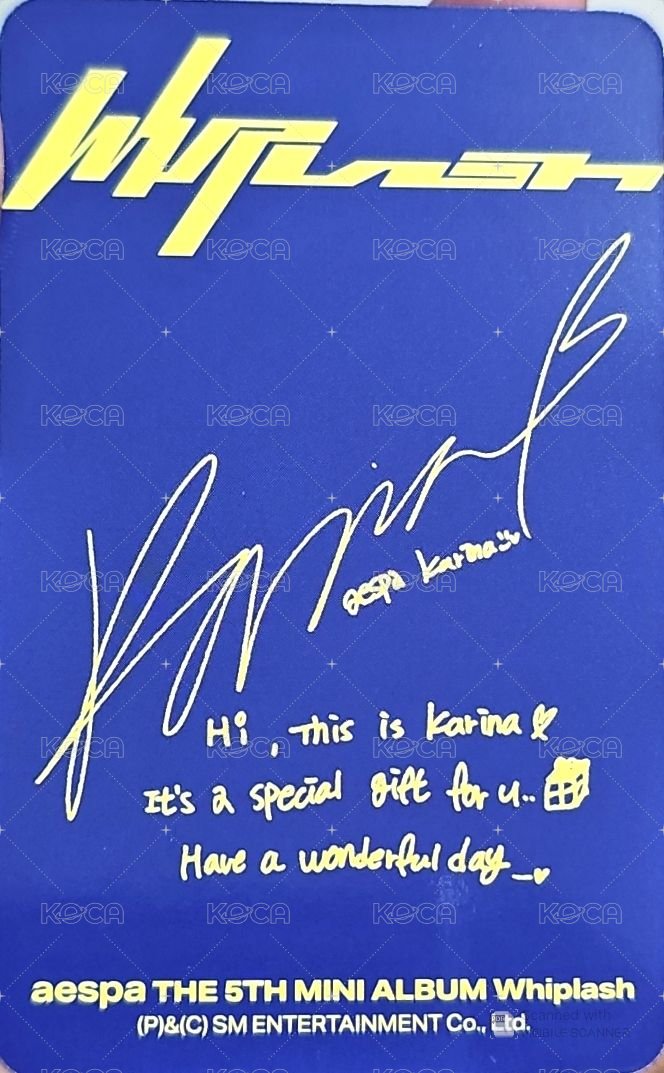 Whiplash
Karina
aespa karina
Hi, This is Karina
It's a special gift for u..
Have a wonderful day_
aespa THE 5TH MINI ALBUM Whiplash
(P)&(C) SM ENTERTAINMENT Co., Ltd.
PDF Scanned with
MOBILE SCANNER
KOCA